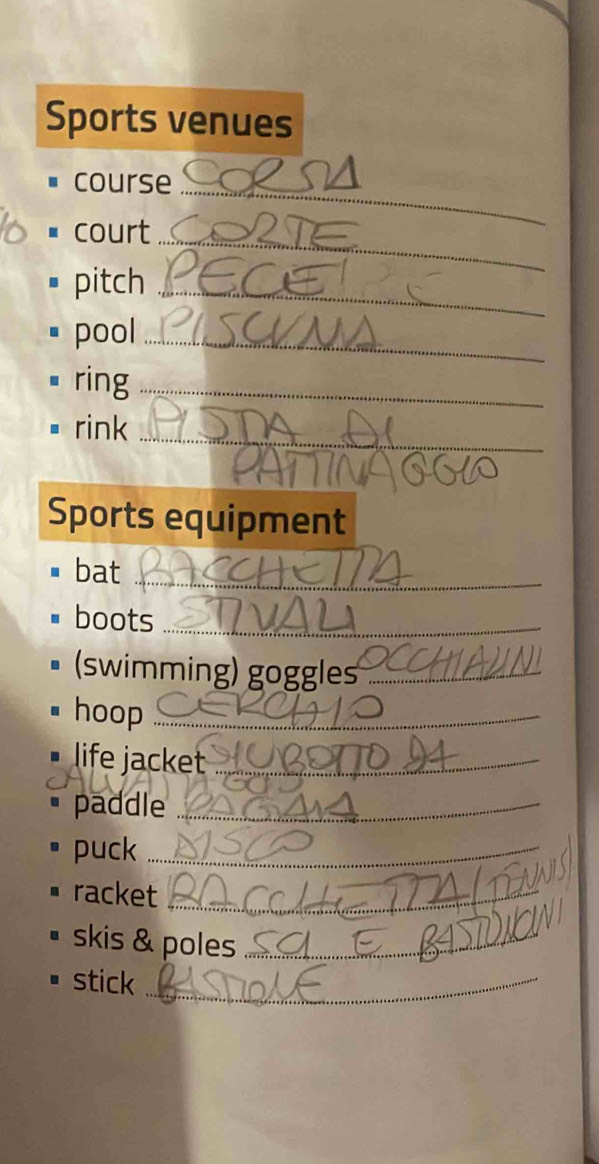 Sports venues
course CORSA
10 court CORTE
pitch
pool PISCINA
ring
rink PISTA DI
PATTINAGGIO
Sports equipment
bat RACCHETTA
boots STIVALI
(swimming) goggles OCCHIALINI
hoop CERCHIO
life jacket GIUBOTTO DA
SALVATAGGIO
paddle PAGAIA
puck DISCO
racket RACCHETTA (TENNIS)
skis & poles SCI E BASTONCINI
stick BASTONE